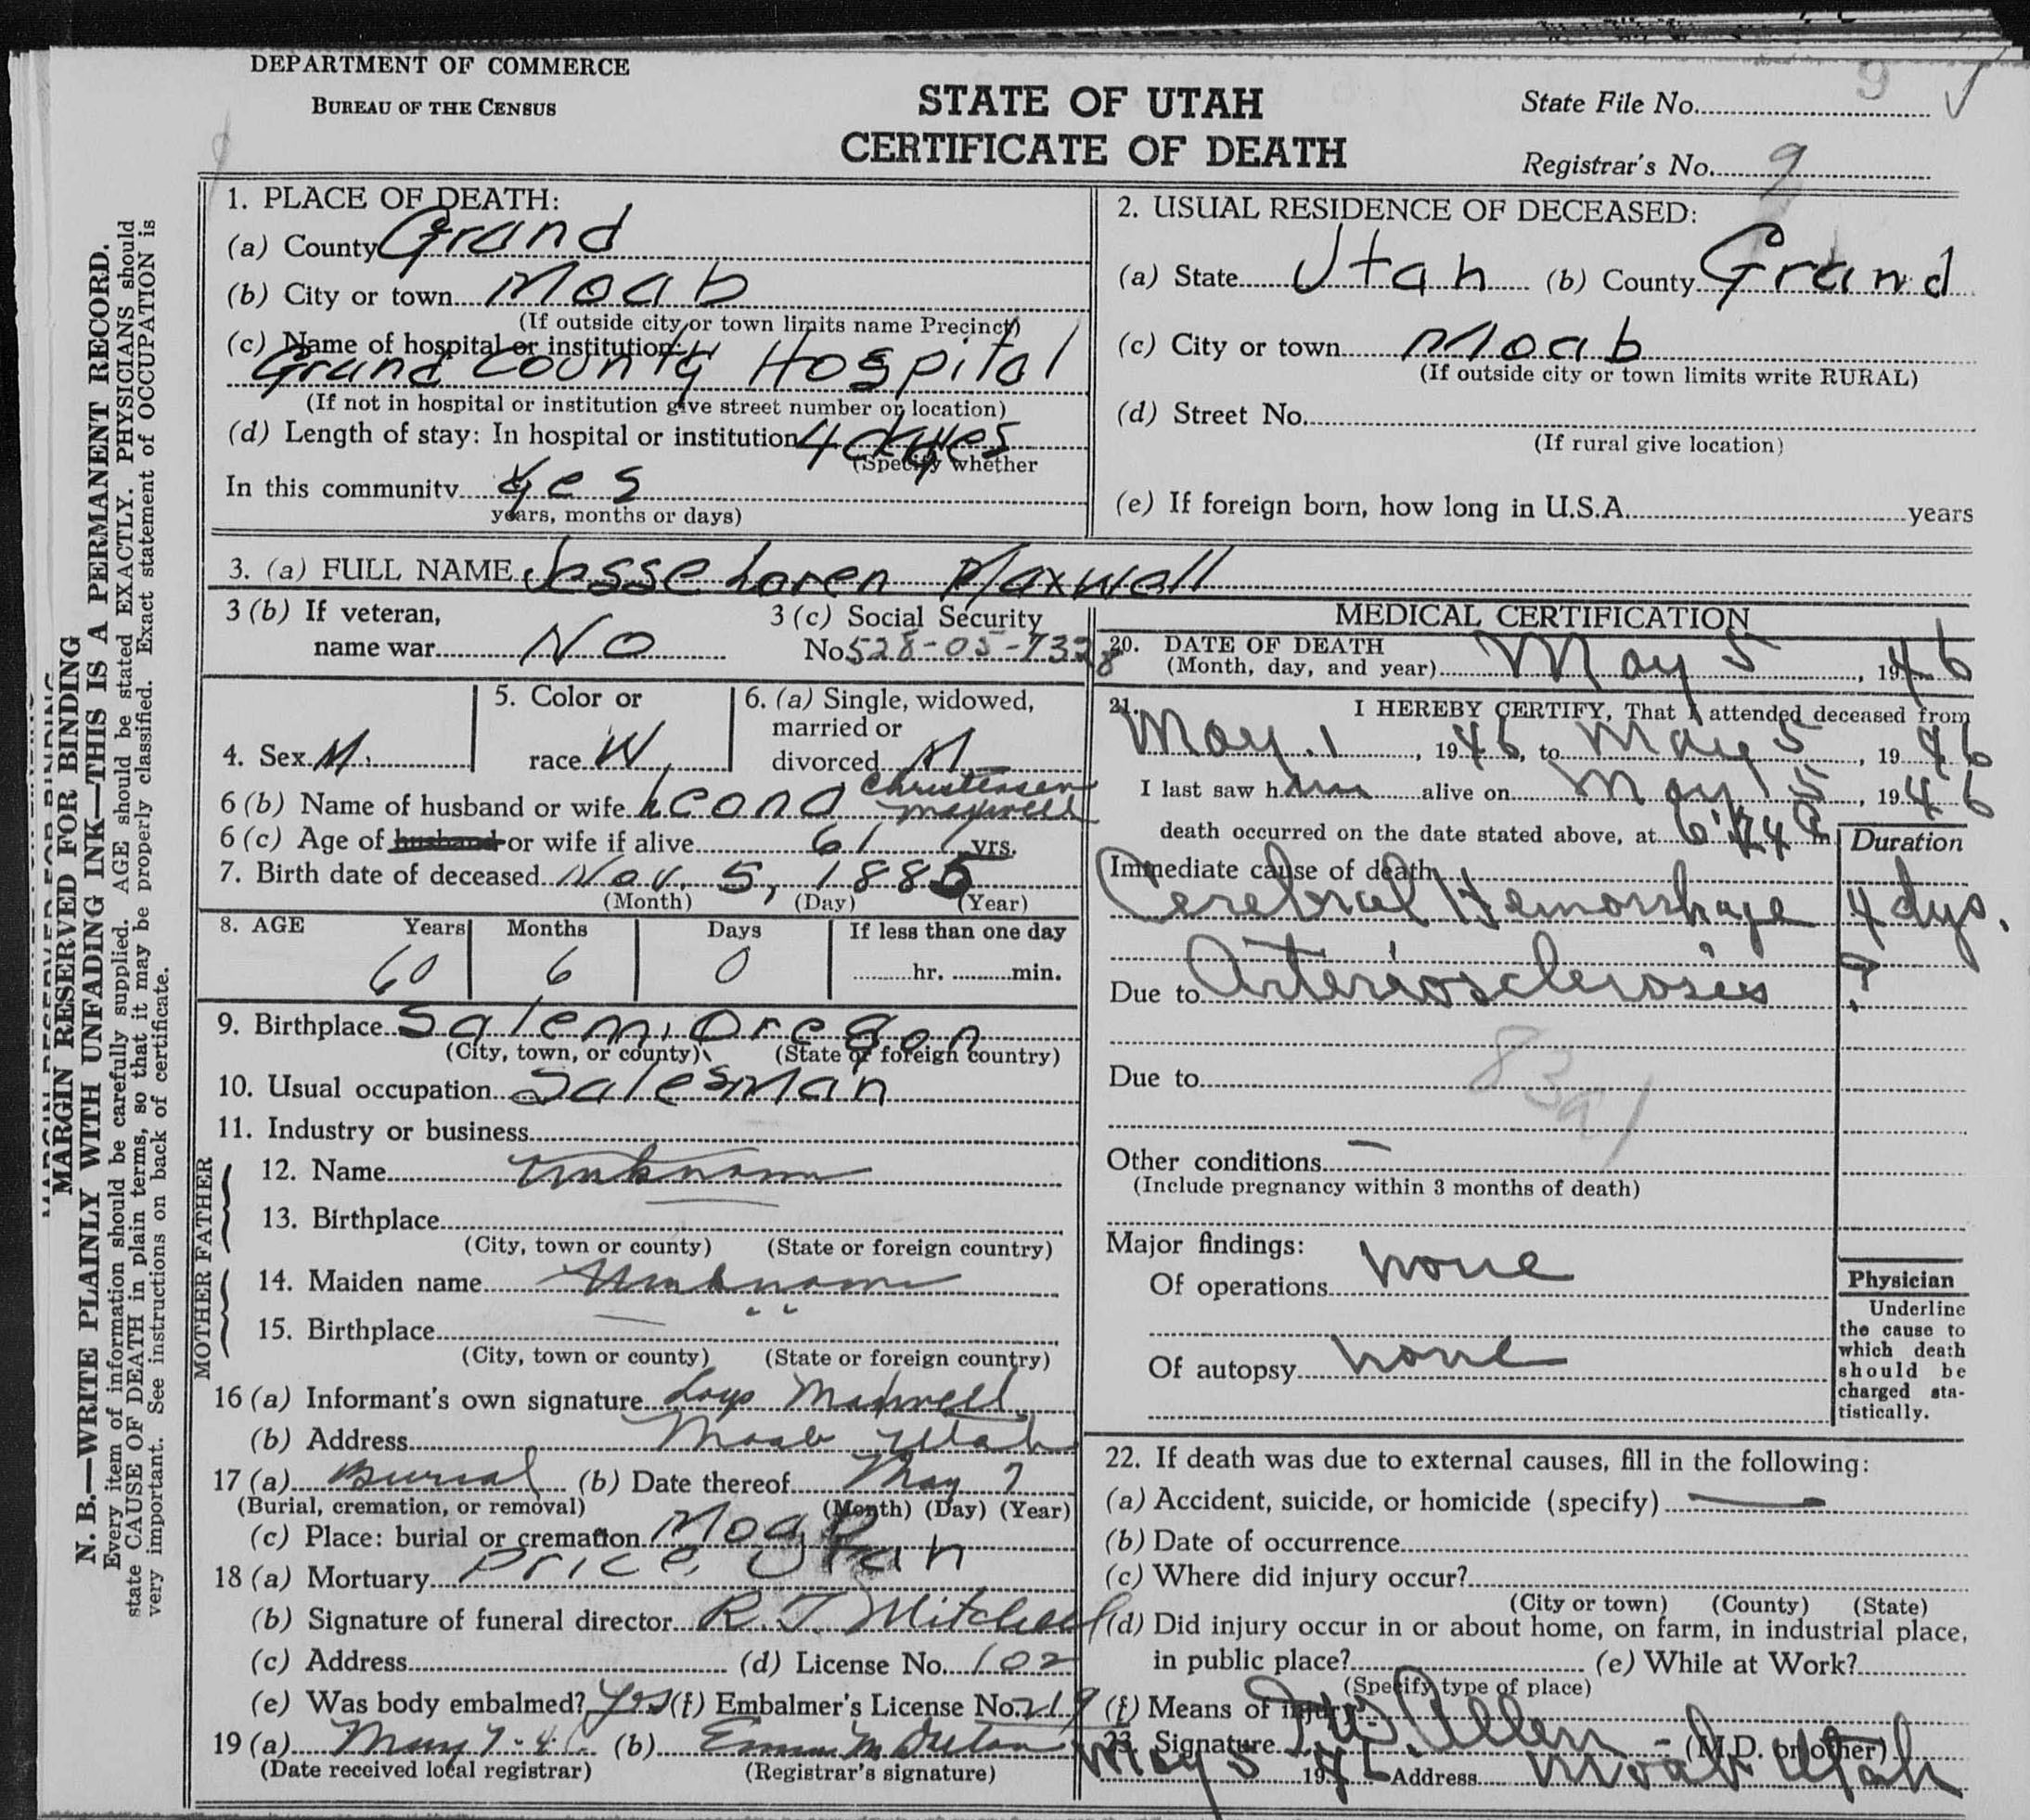 DEPARTMENT OF COMMERCE
BUREAU OF THE CENSUS
STATE OF UTAH
CERTIFICATE OF DEATH
State File No. 9
Registrar's No. 9
MARGIN RESERVED FOR BINDING
N. B.—WRITE PLAINLY WITH UNFADING INK—THIS IS A PERMANENT RECORD.
Every item of information should be carefully supplied. AGE should be stated EXACTLY. PHYSICIANS should
state CAUSE OF DEATH in plain terms, so that it may be properly classified. Exact statement of OCCUPATION is
very important. See instructions on back of certificate.
1. PLACE OF DEATH:
(a) County Grand
(b) City or town Moab
(If outside city or town limits name Precinct)
(c) Name of hospital or institution:
Grand County Hospital
(If not in hospital or institution give street number or location)
(d) Length of stay: In hospital or institution 4 dayes
(Specify whether
In this community Yes
years, months or days)
2. USUAL RESIDENCE OF DECEASED:
(a) State Utah (b) County Grand
(c) City or town Moab
(If outside city or town limits write RURAL)
(d) Street No.
(If rural give location)
(e) If foreign born, how long in U.S.A. years
3. (a) FULL NAME Jesse Loren Maxwell
3 (b) If veteran,
name war No
3 (c) Social Security
No 528-05-7328
4. Sex M.
5. Color or
race W
6. (a) Single, widowed,
married or
divorced M
6 (b) Name of husband or wife Leona Christensen Maxwell
6 (c) Age of husband or wife if alive 61 yrs.
7. Birth date of deceased Nov. 5, 1885
(Month) (Day) (Year)
8. AGE Years Months Days If less than one day
60 6 0 hr. min.
9. Birthplace Salem, Oregon
(City, town, or county) (State or foreign country)
10. Usual occupation Salesman
11. Industry or business
FATHER
12. Name Unknown
13. Birthplace
(City, town or county) (State or foreign country)
MOTHER
14. Maiden name Unknown
15. Birthplace
(City, town or county) (State or foreign country)
16 (a) Informant's own signature Maxwell
(b) Address Moab Utah
17 (a) Burial (b) Date thereof May 7
(Burial, cremation, or removal) (Month) (Day) (Year)
(c) Place: burial or cremation Moab
18 (a) Mortuary Price, Utah
(b) Signature of funeral director R. T. Mitchell
(c) Address (d) License No. 102
(e) Was body embalmed? Yes (f) Embalmer's License No. 219
19 (a) May 7-46 (b)
(Date received local registrar) (Registrar's signature)
MEDICAL CERTIFICATION
20. DATE OF DEATH
(Month, day, and year) May 5, 1946
21. I HEREBY CERTIFY, That I attended deceased from
May 1, 1946, to May 5, 1946
I last saw him alive on May 5, 1946
death occurred on the date stated above, at m
Duration
Immediate cause of death
Cerebral Hemorrhage 4 dys.
Due to Arteriosclerosis ?
83a1
Due to
Other conditions —
(Include pregnancy within 3 months of death)
Major findings:
Of operations none
Of autopsy none
Physician
Underline
the cause to
which death
should be
charged sta-
tistically.
22. If death was due to external causes, fill in the following:
(a) Accident, suicide, or homicide (specify) —
(b) Date of occurrence
(c) Where did injury occur?
(City or town) (County) (State)
(d) Did injury occur in or about home, on farm, in industrial place,
in public place? (e) While at Work?
(Specify type of place)
(f) Means of injury
23. Signature Allen - (M.D. or other)
May 5 1946 Address Moab Utah